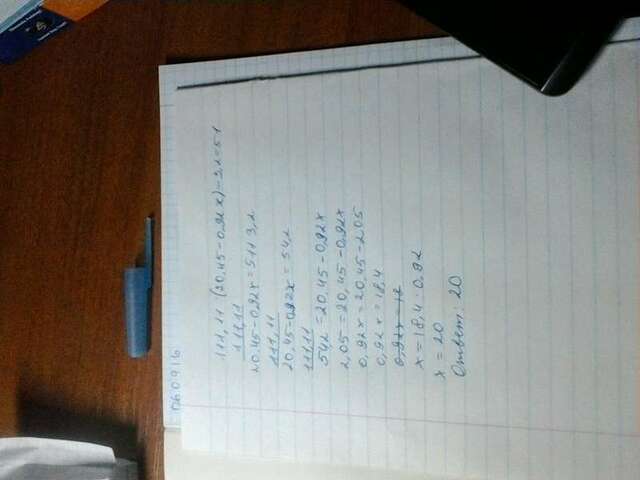 060916
111,11 : (20,45-0,92x)-3,2=51
111,11
20,45-0,92x=51+3,2
111,11
20,45-0,92x = 54,2
111,11
54,2 =20,45-0,92x
2,05 =20,45-0,92x
0,92x=20,45-2,05
0,92x=18,4
0,92x=18
x=18,4:0,92
x = 20
Ответ: 20